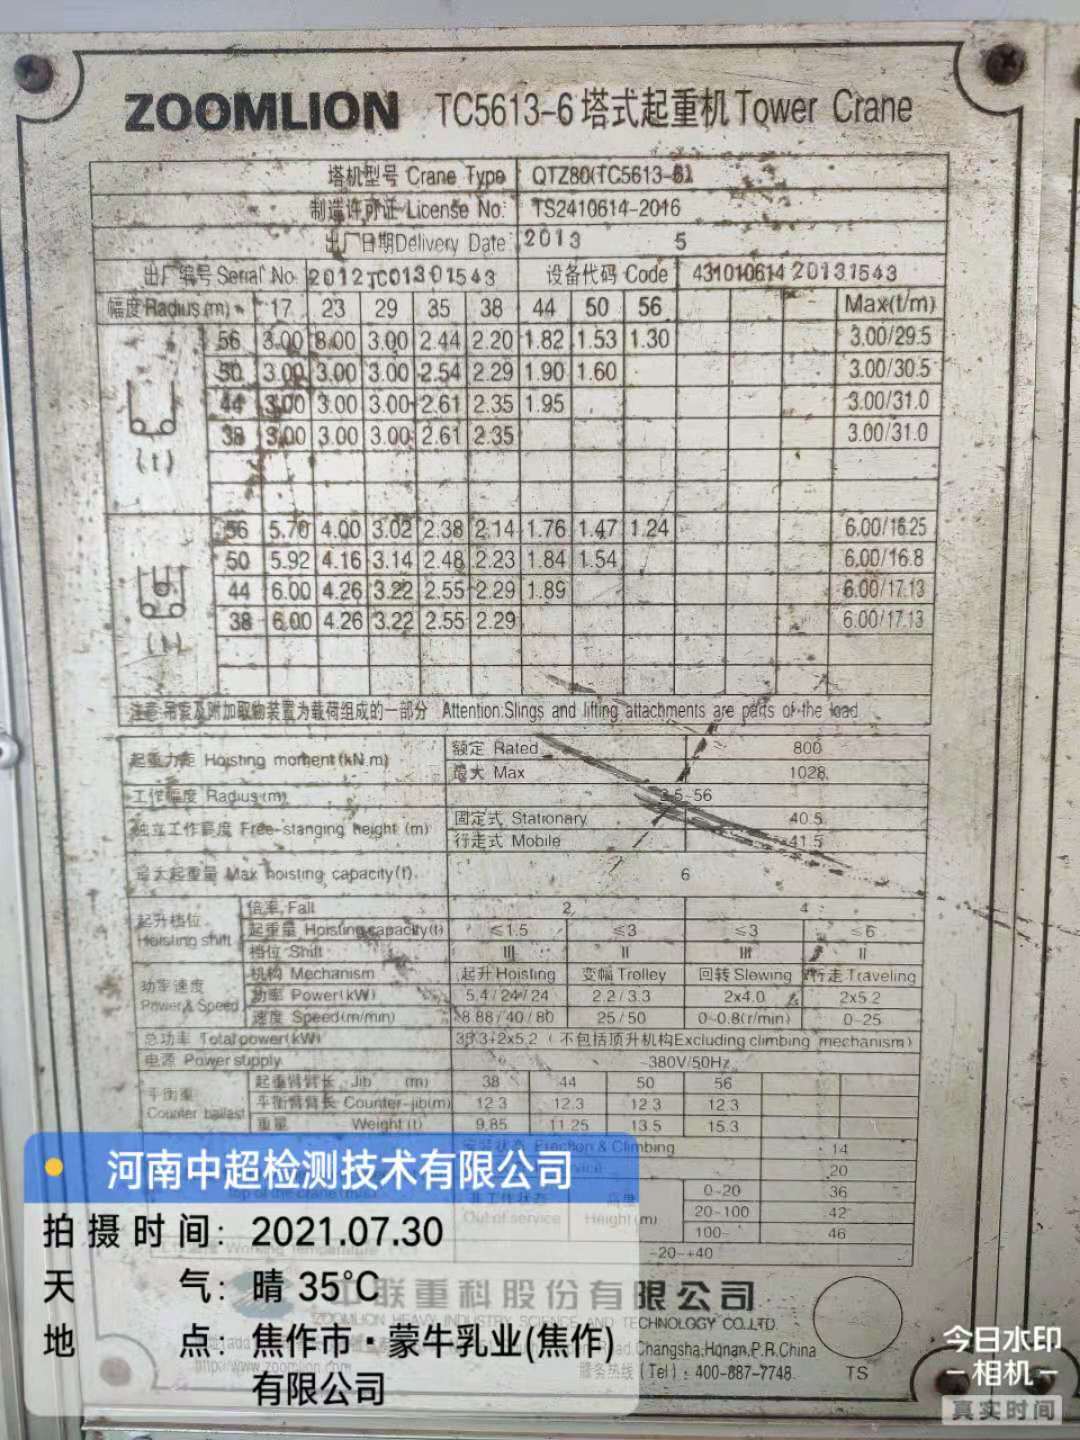 ZOOMLION TC5613-6 塔式起重机 Tower Crane
塔机型号 Crane Type QTZ80(TC5613-6)
制造许可证 License No. TS2410614-2016
出厂日期 Delivery Date 2013 5
出厂编号 Serial No. 2012TC01301543 设备代码 Code 43101061420131543
幅度 Radius (m) 17 23 29 35 38 44 50 56 Max(t/m)
56 3.00 3.00 3.00 2.44 2.20 1.82 1.53 1.30 3.00/29.5
50 3.00 3.00 3.00 2.54 2.29 1.90 1.60 3.00/30.5
44 3.00 3.00 3.00 2.61 2.35 1.95 3.00/31.0
38 3.00 3.00 3.00 2.61 2.35 3.00/31.0
(t)
56 5.70 4.00 3.02 2.38 2.14 1.76 1.47 1.24 6.00/16.25
50 5.92 4.16 3.14 2.48 2.23 1.84 1.54 6.00/16.8
44 6.00 4.26 3.22 2.55 2.29 1.89 6.00/17.13
38 6.00 4.26 3.22 2.55 2.29 6.00/17.13
(t)
注意:吊索及附加取物装置为载荷组成的一部分 Attention:Slings and lifting attachments are parts of the load
起重力矩 Hoisting moment (kN.m) 额定 Rated 800
最大 Max 1028
工作幅度 Radius (m) 2.5~56
独立工作高度 Free-stanging height (m) 固定式 Stationary 40.5
行走式 Mobile 41.5
最大起重量 Max hoisting capacity(t) 6
起升档位 Hoisting shift 倍率 Fall 2 4
起重量 Hoisting capacity(t) ≤1.5 ≤3 ≤3 ≤6
档位 Shift III II III II
功率速度 Power & Speed 机构 Mechanism 起升 Hoisting 变幅 Trolley 回转 Slewing 行走 Traveling
功率 Power(kW) 5.4/24/24 2.2/3.3 2x4.0 2x5.2
速度 Speed(m/min) 8.88/40/80 25/50 0~0.8(r/min) 0~25
总功率 Total power(kW) +2x5.2 (不包括顶升机构Excluding climbing mechanism)
电源 Power supply ~380V/50Hz
平衡重 Counter ballast 起重臂臂长 Jib (m) 38 44 50 56
平衡臂臂长 Counter-jib(m) 12.3 12.3 12.3 12.3
重量 Weight(t) 9.85 11.25 13.5 15.3
安装状态 Erection & Climbing 14
20
top of the crane (m/s) 非工作状态 Out of service 高度 Height(m) 0~20 36
20~100 42
100~ 46
Working Temperature -20~+40
中联重科股份有限公司
ZOOMLION HEAVY INDUSTRY SCIENCE AND TECHNOLOGY CO.,LTD.
Road,Changsha,Hunan,P.R.China
http://www.zoomlion.com 服务热线(Tel): 400-887-7748
TS
河南中超检测技术有限公司
拍摄时间: 2021.07.30
天气: 晴 35°C
地点: 焦作市·蒙牛乳业(焦作)
有限公司
今日水印
相机
真实时间